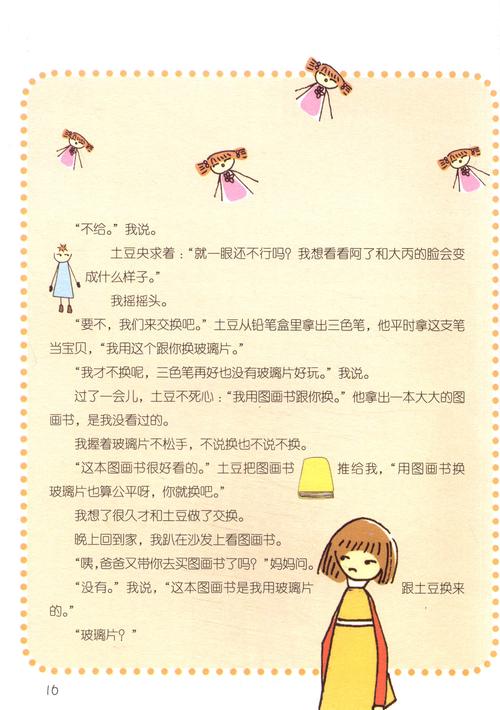 “不给。”我说。
土豆央求着：“就一眼还不行吗？我想看看阿了和大丙的脸会变
成什么样子。”
我摇摇头。
“要不，我们来交换吧。”土豆从铅笔盒里拿出三色笔，他平时拿这支笔
当宝贝，“我用这个跟你换玻璃片。”
“我才不换呢，三色笔再好也没有玻璃片好玩。”我说。
过了一会儿，土豆不死心：“我用图画书跟你换。”他拿出一本大大的图
画书，是我没看过的。
我握着玻璃片不松手，不说换也不说不换。
“这本图画书很好看的。”土豆把图画书 推给我，“用图画书换
玻璃片也算公平呀，你就换吧。”
我想了很久才和土豆做了交换。
晚上回到家，我趴在沙发上看图画书。
“咦，爸爸又带你去买图画书了吗？”妈妈问。
“没有。”我说，“这本图画书是我用玻璃片 跟土豆换来
的。”
“玻璃片？”
16